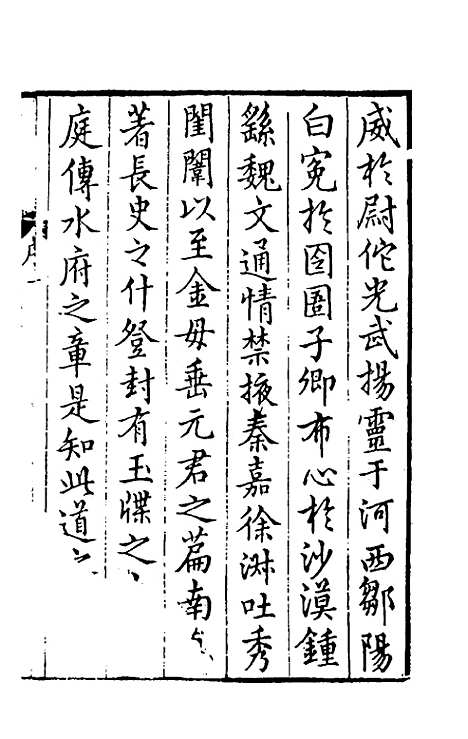 威於尉佗光武揚靈于河西鄒陽
白冤於囹圄子卿布心於沙漠鍾
繇魏文通情禁掖秦嘉徐淑吐秀
閨闈以至金母垂元君之篇南
著長史之什登封有玉牒之
庭傳水府之章是知此道
序一